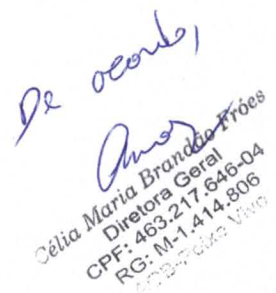 De acordo,
Célia Maria Brandão Fróes
Diretora Geral
CPF: 463.217.646-04
RG: M-1.414.806
AGB-Peixe Vivo